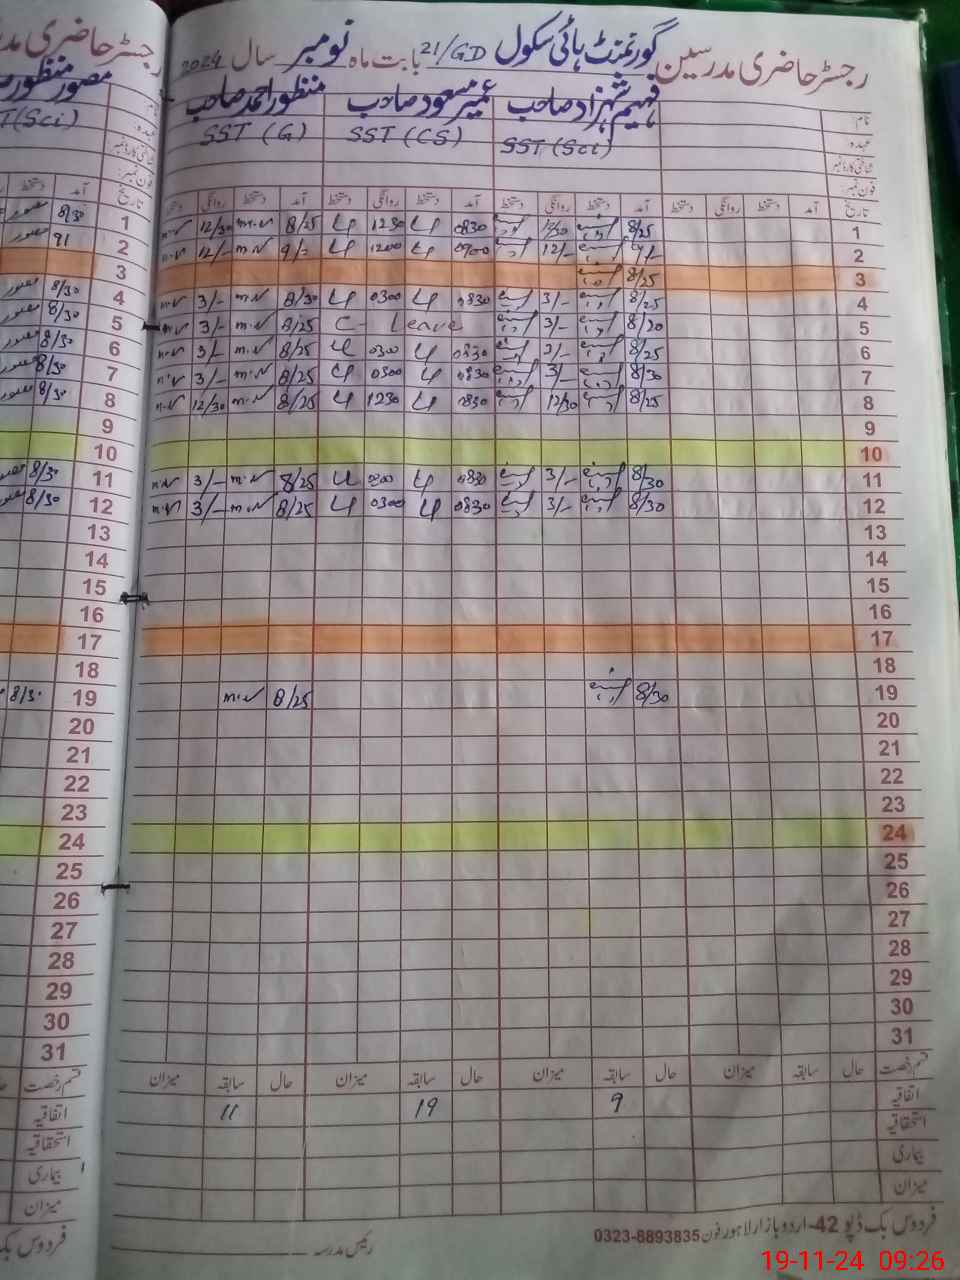 رجسٹر حاضری مدرسین گورنمنٹ ہائی سکول 21/GD بابت ماہ نومبر سال 2024
نام: فہیم شہزاد صاحب عمیر مسعود صاحب منظور احمد صاحب
عہدہ: SST (Sci) SST (CS) SST (G)
شناختی کارڈ نمبر
فون نمبر:
تاریخ آمد دستخط روانگی دستخط آمد دستخط روانگی دستخط آمد دستخط روانگی دستخط آمد دستخط روانگی دستخط
1 8/25 12/30 0830 1230 8/25 m.n 12/30
2 9/- 12/- 0900 1200 9/- m.n 12/-
3 8/25
4 8/25 3/- 0830 0300 8/30 m.n 3/-
5 8/20 3/- C- Leave 8/25 m.n 3/-
6 8/25 3/- 0830 0300 8/25 m.n 3/-
7 8/30 3/- 0830 0300 8/25 m.n 3/-
8 8/25 12/30 0830 1230 8/25 m.n 12/30
9
10
11 8/30 3/- 0830 0300 8/25 m.n 3/-
12 8/30 3/- 0830 0300 8/25 m.n 3/-
13
14
15
16
17
18
19 8/30 8/25 m.n
20
21
22
23
24
25
26
27
28
29
30
31
قسم رخصت حال سابقہ میزان حال سابقہ میزان حال سابقہ میزان حال سابقہ میزان
اتفاقیہ 9 19 11
استحقاقیہ
بیماری
میزان
فردوس بک ڈپو 42-اردو بازار لاہور فون 0323-8893835
رئیس مدرسہ
رجسٹر حاضری
T(Sci)
تاریخ آمد دستخط
1 8/30
2 91
3
4 8/30
5 8/30
6 8/30
7 8/30
8 8/30
9
10
11 8/30
12 8/30
13
14
15
16
17
18
19 8/30
20
21
22
23
24
25
26
27
28
29
30
31
قسم رخصت
اتفاقیہ
استحقاقیہ
بیماری
میزان
فردوس بک
19-11-24 09:26